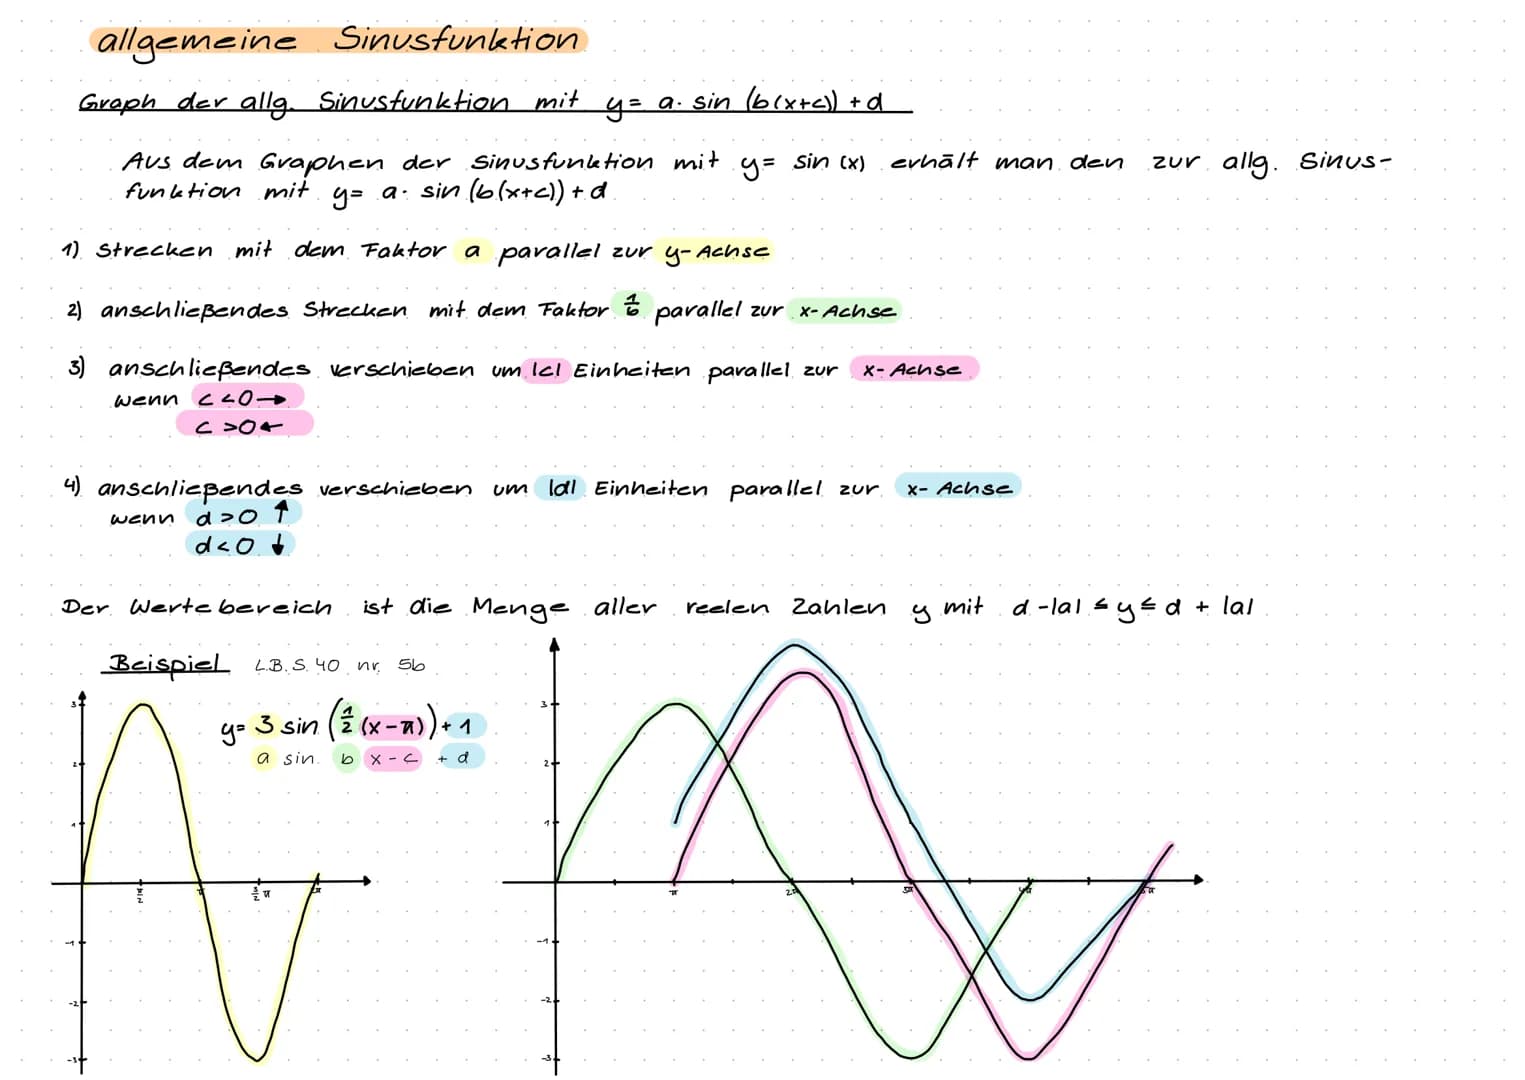 allgemeine Sinusfunktion
Graph der allg. Sinusfunktion mit y = a · sin (b(x+c)) + d
Aus dem Graphen der Sinusfunktion mit y = sin (x) erhält man den zur allg. Sinus-
funktion mit y = a · sin (b(x+c)) + d
1) Strecken mit dem Faktor a parallel zur y-Achse
2) anschließendes Strecken mit dem Faktor 1/b parallel zur x-Achse
3) anschließendes verschieben um |c| Einheiten parallel zur x-Achse
wenn c < 0 →
c > 0 ←
4) anschließendes verschieben um |d| Einheiten parallel zur x-Achse
wenn d > 0 ↑
d < 0 ↓
Der Wertebereich ist die Menge aller reelen Zahlen y mit d - |a| ≤ y ≤ d + |a|
Beispiel L.B. S. 40 nr. 5b
y = 3 sin (1/2 (x - π)) + 1
a sin b x - c + d
3
2
1
-1
-2
-3
π/2
π
3/2 π
2π
3
2
1
-1
-2
-3
π
2π
3π
4π
5π